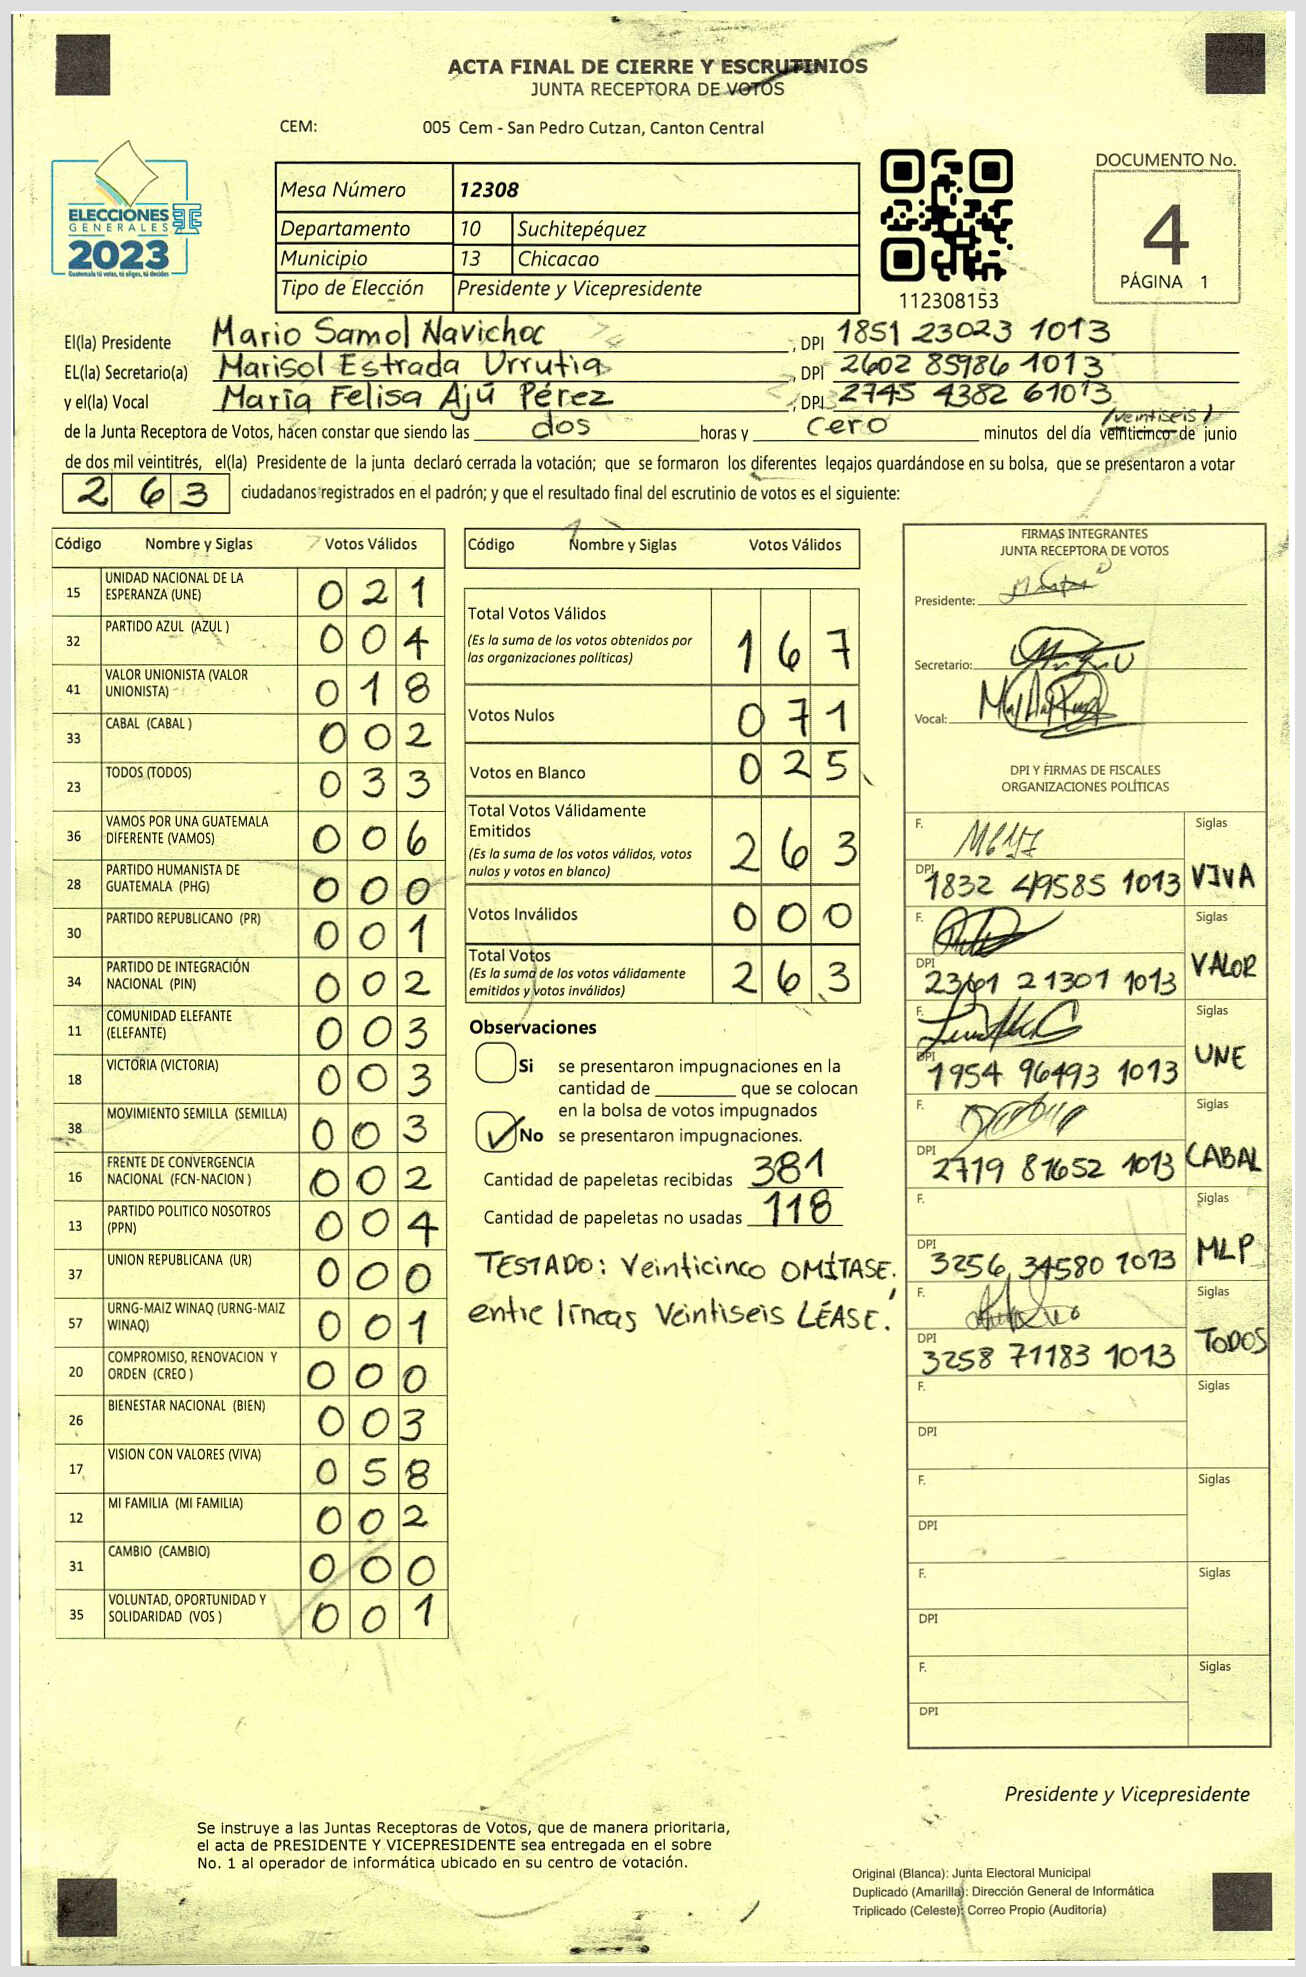 ACTA FINAL DE CIERRE Y ESCRUTINIOS
JUNTA RECEPTORA DE VOTOS
CEM: 005 Cem - San Pedro Cutzan, Canton Central
ELECCIONES
GENERALES
2023
Guatemala tú votas, tú eliges, tú decides
Mesa Número 12308
Departamento 10 Suchitepéquez
Municipio 13 Chicacao
Tipo de Elección Presidente y Vicepresidente
112308153
DOCUMENTO No.
4
PÁGINA 1
El(la) Presidente Mario Samol Navichoc, DPI 1851 23023 1013
EL(la) Secretario(a) Marisol Estrada Urrutia, DPI 2602 85986 1013
y el(la) Vocal María Felisa Ajú Pérez, DPI 2745 4382 61013
/veintiseis/
de la Junta Receptora de Votos, hacen constar que siendo las dos horas y cero minutos del día veinticinco de junio
de dos mil veintitrés, el(la) Presidente de la junta declaró cerrada la votación; que se formaron los diferentes legajos guardándose en su bolsa, que se presentaron a votar
263 ciudadanos registrados en el padrón; y que el resultado final del escrutinio de votos es el siguiente:
Código Nombre y Siglas Votos Válidos
15 UNIDAD NACIONAL DE LA ESPERANZA (UNE) 021
32 PARTIDO AZUL (AZUL ) 004
41 VALOR UNIONISTA (VALOR UNIONISTA) 018
33 CABAL (CABAL ) 002
23 TODOS (TODOS) 033
36 VAMOS POR UNA GUATEMALA DIFERENTE (VAMOS) 006
28 PARTIDO HUMANISTA DE GUATEMALA (PHG) 000
30 PARTIDO REPUBLICANO (PR) 001
34 PARTIDO DE INTEGRACIÓN NACIONAL (PIN) 002
11 COMUNIDAD ELEFANTE (ELEFANTE) 003
18 VICTORIA (VICTORIA) 003
38 MOVIMIENTO SEMILLA (SEMILLA) 003
16 FRENTE DE CONVERGENCIA NACIONAL (FCN-NACION ) 002
13 PARTIDO POLITICO NOSOTROS (PPN) 004
37 UNION REPUBLICANA (UR) 000
57 URNG-MAIZ WINAQ (URNG-MAIZ WINAQ) 001
20 COMPROMISO, RENOVACION Y ORDEN (CREO ) 000
26 BIENESTAR NACIONAL (BIEN) 003
17 VISION CON VALORES (VIVA) 058
12 MI FAMILIA (MI FAMILIA) 002
31 CAMBIO (CAMBIO) 000
35 VOLUNTAD, OPORTUNIDAD Y SOLIDARIDAD (VOS ) 001
Código Nombre y Siglas Votos Válidos
Total Votos Válidos
(Es la suma de los votos obtenidos por
las organizaciones políticas) 167
Votos Nulos 071
Votos en Blanco 025
Total Votos Válidamente
Emitidos
(Es la suma de los votos válidos, votos
nulos y votos en blanco) 263
Votos Inválidos 000
Total Votos
(Es la suma de los votos válidamente
emitidos y votos inválidos) 263
Observaciones
Si se presentaron impugnaciones en la
cantidad de ________ que se colocan
en la bolsa de votos impugnados
No se presentaron impugnaciones.
Cantidad de papeletas recibidas 381
Cantidad de papeletas no usadas 118
TESTADO: Veinticinco OMÍTASE,
entre líneas Veintiseis LÉASE.
FIRMAS INTEGRANTES
JUNTA RECEPTORA DE VOTOS
Presidente:
Secretario:
Vocal:
DPI Y FIRMAS DE FISCALES
ORGANIZACIONES POLÍTICAS
F. Siglas
DPI 1832 49585 1013 VIVA
F. Siglas
DPI 2361 21301 1013 VALOR
F. Siglas
DPI 1954 96493 1013 UNE
F. Siglas
DPI 2719 81652 1013 CABAL
F. Siglas
DPI 3256 34580 1013 MLP
F. Siglas
DPI 3258 71183 1013 TODOS
F. Siglas
DPI
F. Siglas
DPI
F. Siglas
DPI
F. Siglas
DPI
Presidente y Vicepresidente
Se instruye a las Juntas Receptoras de Votos, que de manera prioritaria,
el acta de PRESIDENTE Y VICEPRESIDENTE sea entregada en el sobre
No. 1 al operador de informática ubicado en su centro de votación.
Original (Blanca): Junta Electoral Municipal
Duplicado (Amarilla): Dirección General de Informática
Triplicado (Celeste): Correo Propio (Auditoría)